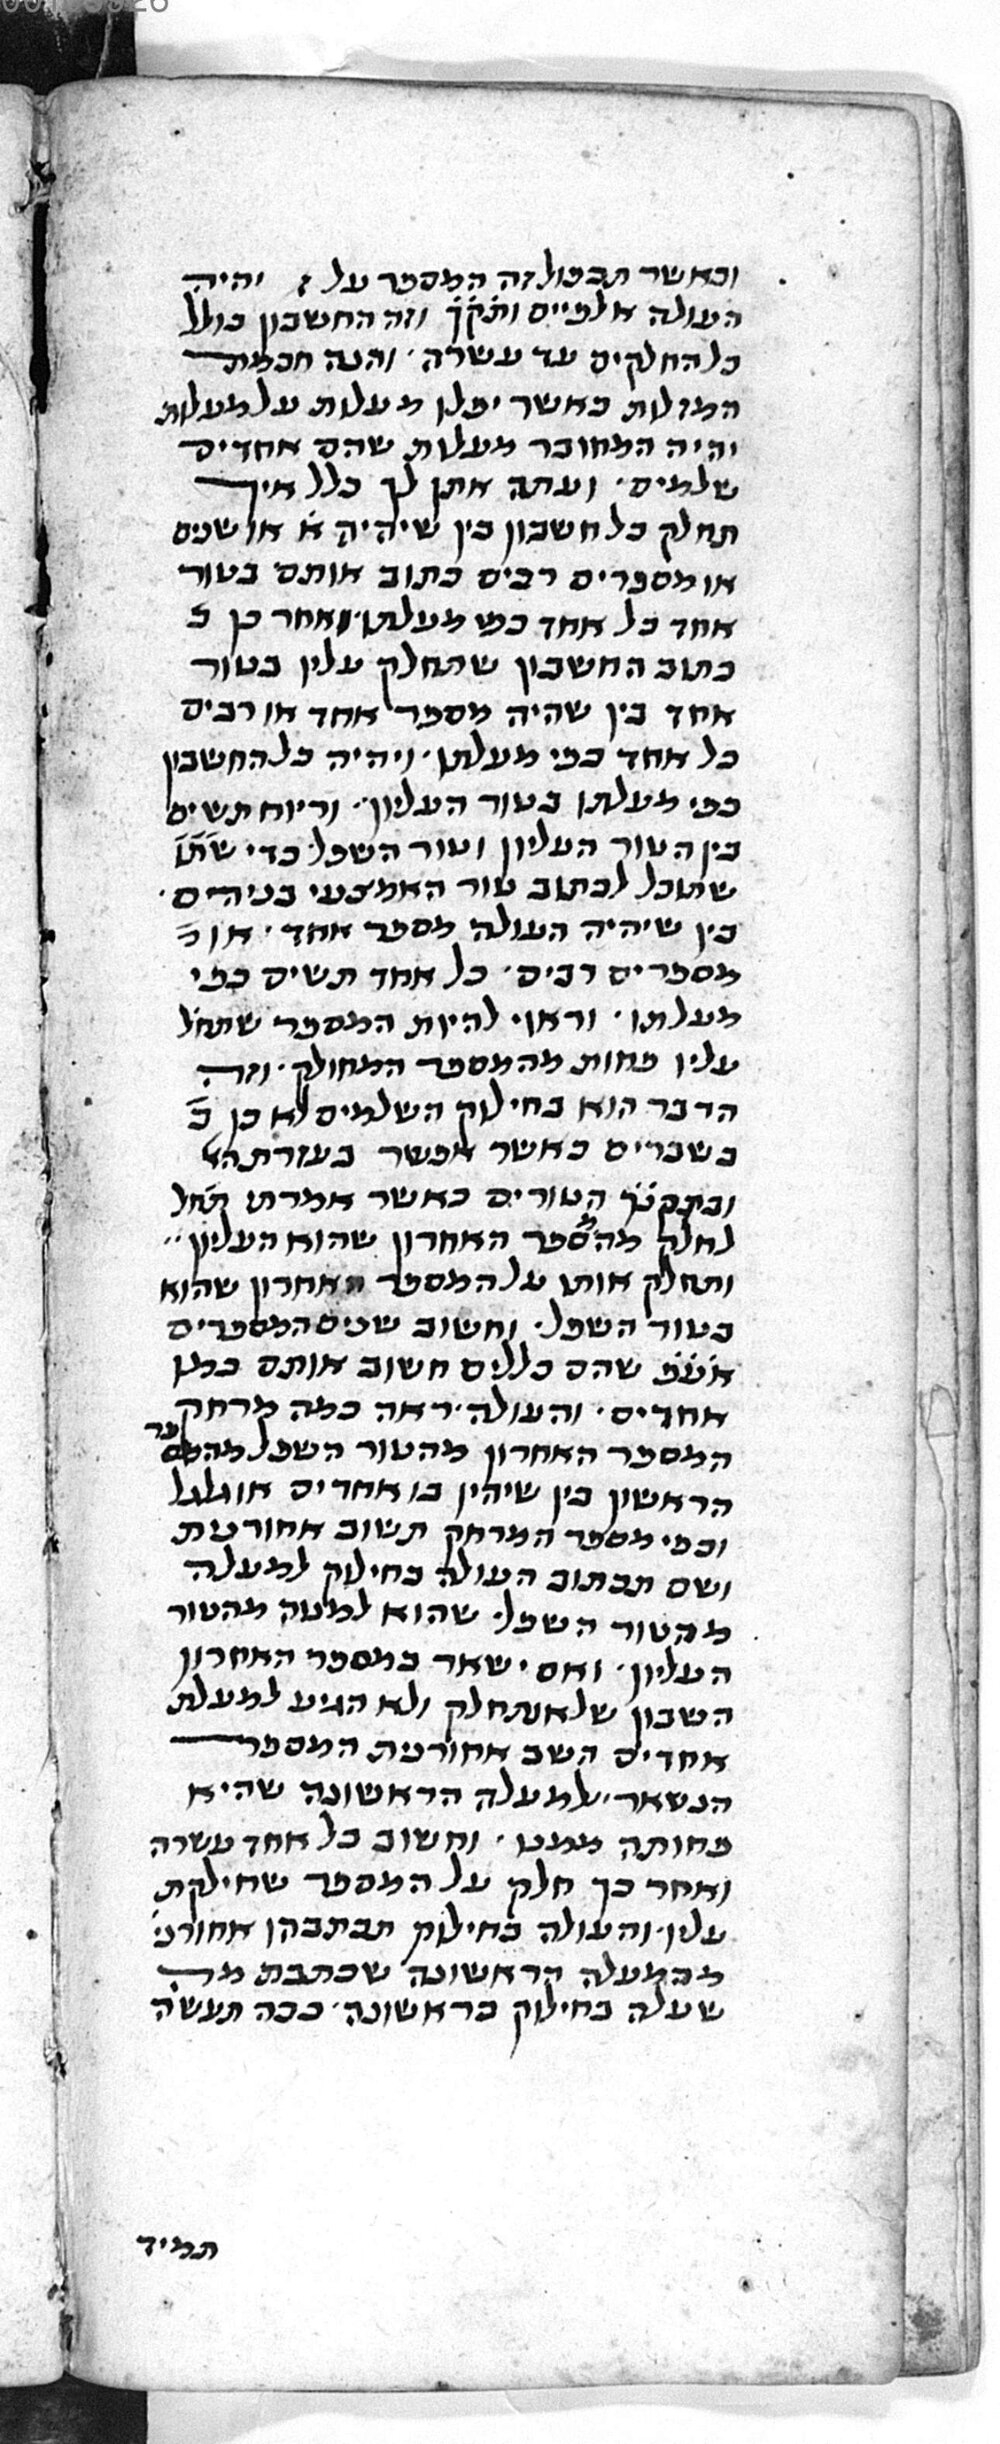 וכאשר תכפול זה המספר על ז יהיה
העולה אלפיים ותקך וזה החשבון כולל
כל החלקים עד עשרה ׳ והנה חכמת
המזלות כאשר יפלו מעלות על מעלות
יהיה המחובר מעלות שהם אחדים
שלמים ׳ ועתה אתן לך כלל איך
תחלק כל חשבון בין שיהיה א או שנים
או מספרים רבים כתוב אותם בטור
אחד כל אחד כפי מעלתו ׳ ואחר כן כ
כתוב החשבון שתחלק עליו בטור
אחד בין שהיה מספר אחד או רבים
כל אחד כפי מעלתו ׳ ויהיה כל החשבון
כפי מעלתו בטור העליון ׳ וריוח תשים
בין הטור העליון וטור השפל כדי שתו
שתוכל לכתוב טור האמצעי בניהים ׳
בין שיהיה העולה מספר אחד ׳ או
מספרים רבים ׳ כל אחד תשים כפי
מעלתו ׳ וראוי להיות המספר שתחל
עליו פחות מהמספר המחולק ׳ וזה
הדבר הוא בחילוק השלמים לא כן ב
בשברים כאשר אפשר בעזרת הא
הטורים כאשר אמרתי תחל
לחלק מהמספר האחרון שהוא העליון ׳׳
ותחלק אותו על המספר האחרון שהוא
בטור השפל ׳ וחשוב שנים המספרים
אעפ שהם כללים חשוב אותם כמו
אחדים ׳ והעולה ׳ ראה כמה מרחק
המספר האחרון מהטור השפל מהמספר
הראשון בין שיהיו בו אחדים או גלגל
וכפי מספר המרחק תשוב אחורנית
ושם תכתוב העולה בחילוק למעלה
מהטור השפל ׳ שהוא למטה מהטור
העליון ׳ ואם ישאר במספר האחרון
חשבון שלא נתחלק ולא הגיע למעלת
אחדים השב אחורנית המספר
הנשאר ׳ למעלה הראשונה שהיא
פחותה ממנו ׳ וחשוב כל אחד עשרה
ואחר כך חלק על המספר שחילקת
עליו ׳ והעולה בחילוק תכתבהו אחורני
מהמעלה הראשונה שכתבת מה
שעלה בחילוק בראשונה ׳ ככה תעשה
תמיד